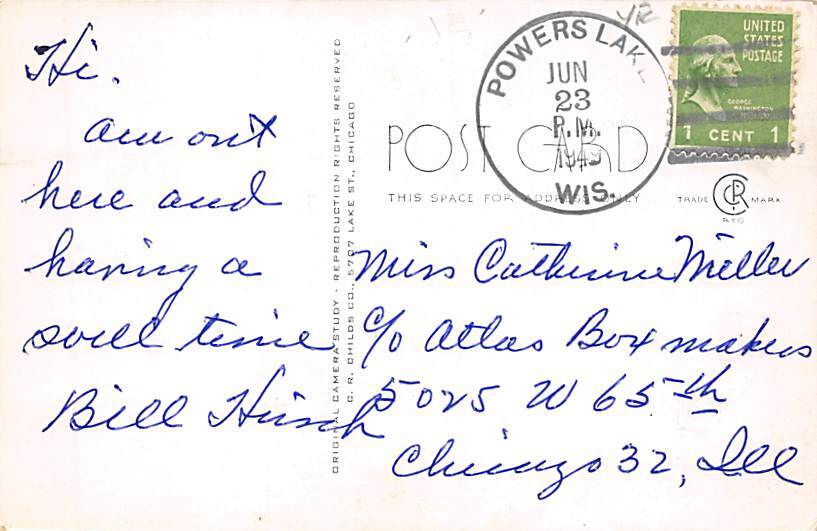 Hi.
am out
here and
having a
swell time
Bill Hirsch
ORIGINAL CAMERA STUDY - REPRODUCTION RIGHTS RESERVED
C. R. CHILDS CO., 5707 LAKE ST., CHICAGO
POST CARD
THIS SPACE FOR ADDRESS ONLY
TRADE CRC MARK
REG
POWERS LAKE
JUN
23
P.M.
1949
WIS.
UNITED
STATES
POSTAGE
GEORGE
WASHINGTON
1 CENT 1
Miss Catherine Miller
c/o Atlas Box makers
5025 W 65th
Chicago 32, Ill